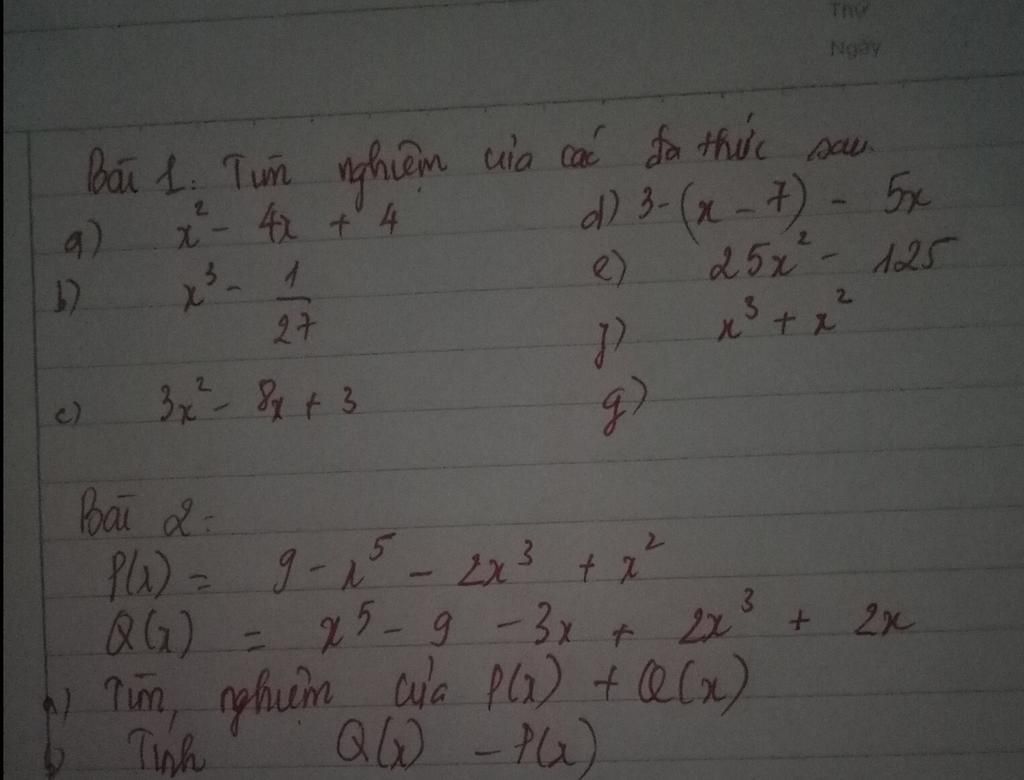 Thứ
Ngày
Bài 1: Tìm nghiệm của các đa thức sau.
a) x² - 4x + 4
d) 3-(x - 7) - 5x
b) x³ - 1/27
e) 25x² - 125
f) x³ + x²
c) 3x² - 8x + 3
g)
Bài 2:
P(x) = 9 - x⁵ - 2x³ + x²
Q(x) = x⁵ - 9 - 3x + 2x³ + 2x
a) Tìm nghiệm của P(x) + Q(x)
b) Tính Q(x) - P(x)